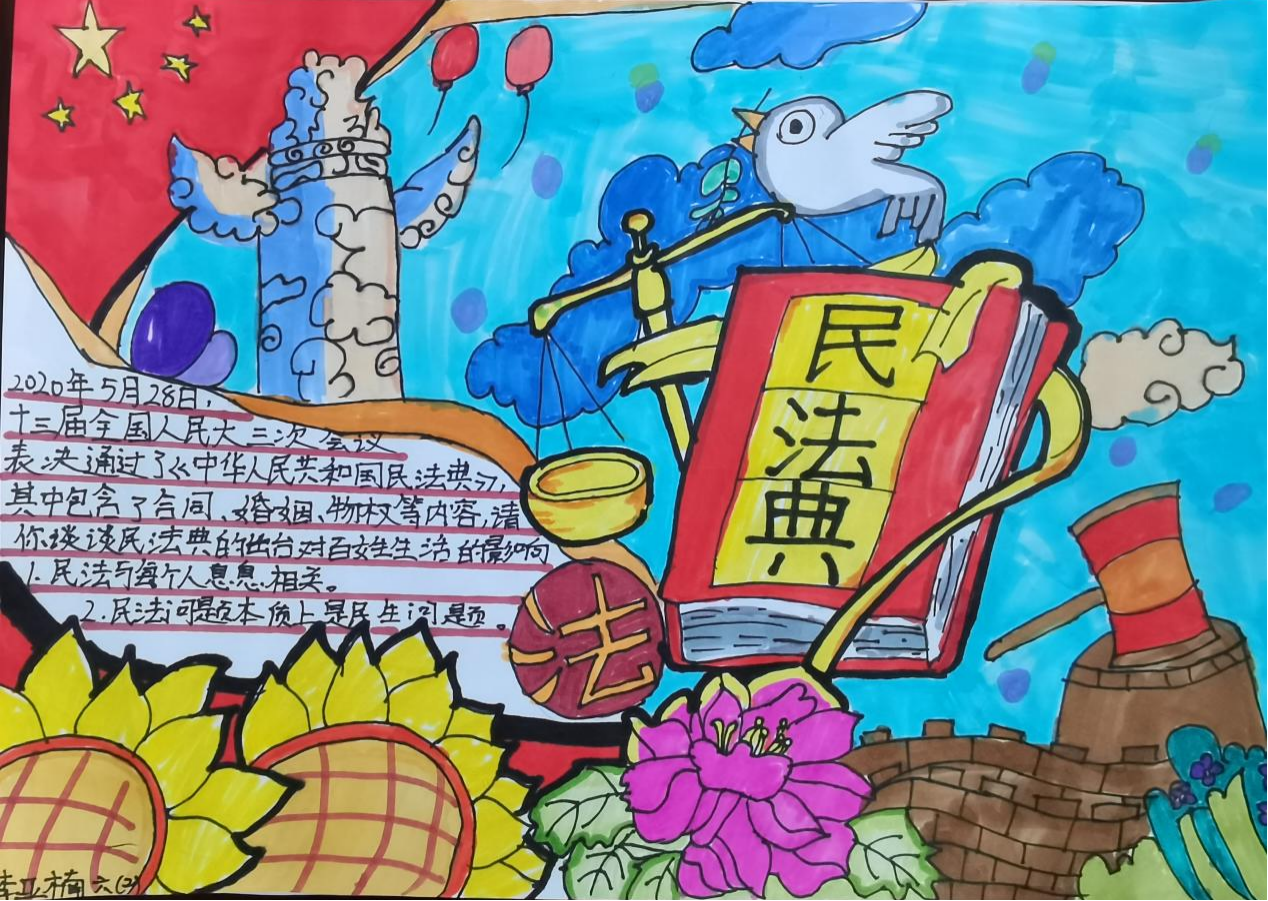 2020年5月28日,
十三届全国人民大三次会议
表决通过了《中华人民共和国民法典》,
其中包含了合同、婚姻、物权等内容,请
你谈谈民法典的出台对百姓生活的影响
1.民法与每个人息息相关。
2.民法问题本质上是民生问题。
民
法
典
法
李亚楠 六(3)